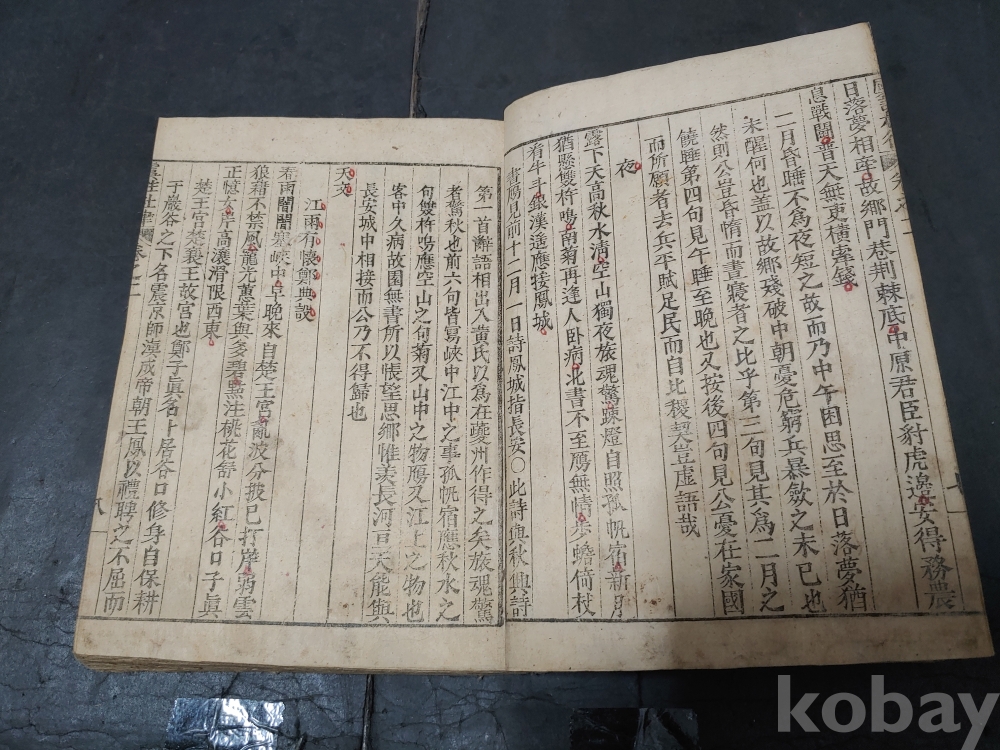 日落夢相產故鄉門巷荆棘底中原君臣豺虎邊安得務農
息戰鬪普天無吏橫索錢
二月昏睡不爲夜短之故而乃中午困思至於日落夢猶
未醒何也盖以故鄉殘破中朝憂危窮兵暴歛之未已也
然則公豈昏惰而晝寢者之比乎第三句見其爲二月之
饒睡第四句見午睡至晚也又按後四句見公憂在家國
而所願者去兵平賦足民而自比稷契豈虛語哉
夜
露下天高秋水清空山獨夜旅魂驚踈燈自照孤帆宿新月
猶懸雙杵鳴南菊再逢人卧病北書不至鴈無情步蟾倚杖
看牛斗銀漢遙應接鳳城
書鴈見前十二月一日詩鳳城指長安○此詩與秋興詩
第一首辭語相出入黄氏以爲在夔州作得之矣旅魂驚
者驚秋也前六句皆寫峽中江中之事孤帆宿應秋水之
句雙杵鳴應空山之句菊又山中之物鴈又江上之物也
客中久病故園無書所以悵望思鄉惟羡長河亘天能與
長安城中相接而公乃不得歸也
天文
江雨有懷鄭典設
春雨闇闇塞峽中早晚來自楚王宮亂波分披已打岸弱雲
狼藉不禁風寵光蕙葉與多碧點注桃花舒小紅谷口子眞
正憶女岸高瀼滑限西東
楚王宮楚襄王故宮也鄭子眞名朴居谷口修身自保耕
于巖谷之下名震京師漢成帝朝王鳳以禮聘之不屈而
卷之二
八
kobay